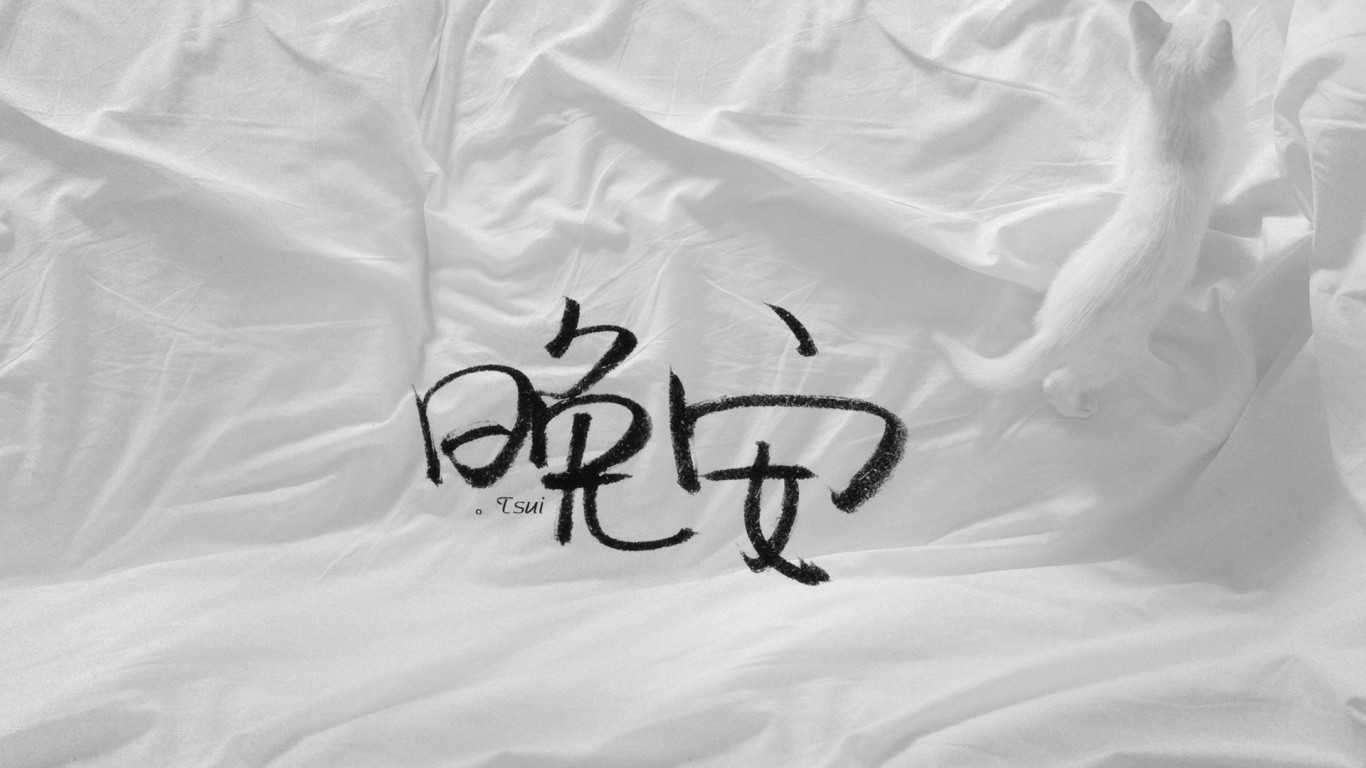 晚安
。Tsui